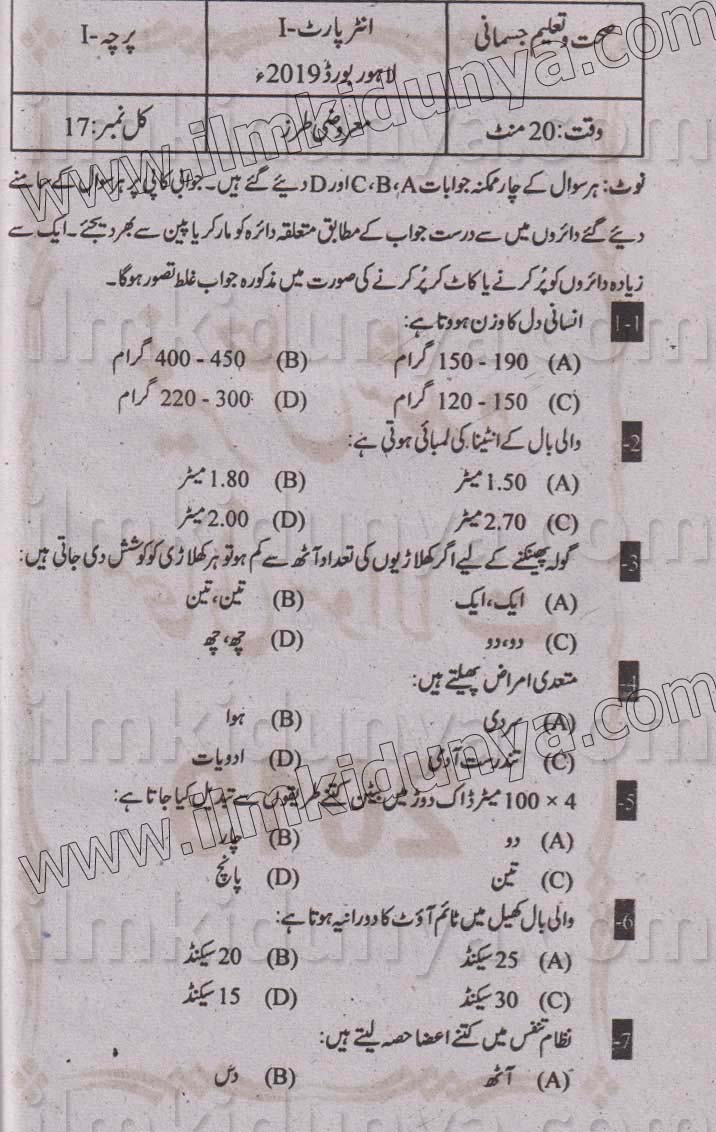 صحت و تعلیم جسمانی انٹر پارٹ-I پرچہ-I
لاہور بورڈ 2019ء
وقت: 20 منٹ معروضی طرز کل نمبر: 17
نوٹ: ہر سوال کے چار ممکنہ جوابات C،B،A اور D دیئے گئے ہیں۔ جوابی کاپی پر ہر سوال کے سامنے
دیئے گئے دائروں میں سے درست جواب کے مطابق متعلقہ دائرہ کو مارکر یا پین سے بھر دیجئے۔ ایک سے
زیادہ دائروں کو پُر کرنے یا کاٹ کر پُر کرنے کی صورت میں مذکورہ جواب غلط تصور ہوگا۔
1-1 انسانی دل کا وزن ہوتا ہے:
(A) 150 - 190 گرام (B) 400 - 450 گرام
(C) 120 - 150 گرام (D) 220 - 300 گرام
-2 والی بال کے انٹینا کی لمبائی ہوتی ہے:
(A) 1.50 میٹر (B) 1.80 میٹر
(C) 2.70 میٹر (D) 2.00 میٹر
-3 گولہ پھینکنے کے لیے اگر کھلاڑیوں کی تعداد آٹھ سے کم ہو تو ہر کھلاڑی کو کوشش دی جاتی ہیں:
(A) ایک، ایک (B) تین، تین
(C) دو، دو (D) چھ، چھ
-4 متعدی امراض پھیلتے ہیں:
(A) سردی (B) ہوا
(C) تندرست آدمی (D) ادویات
-5 4 × 100 میٹر ڈاک دوڑ میں بیٹن کتنے طریقوں سے تبدیل کیا جاتا ہے:
(A) دو (B) چار
(C) تین (D) پانچ
-6 والی بال کھیل میں ٹائم آؤٹ کا دورانیہ ہوتا ہے:
(A) 25 سیکنڈ (B) 20 سیکنڈ
(C) 30 سیکنڈ (D) 15 سیکنڈ
-7 نظام تنفس میں کتنے اعضا حصہ لیتے ہیں:
(A) آٹھ (B) دس
www.ilmkidunya.com
www.ilmkidunya.com
ilmkidunya.com
ilmkidunya.com
ilmkidunya.com
ilmkidunya.com
ilmkidunya.com